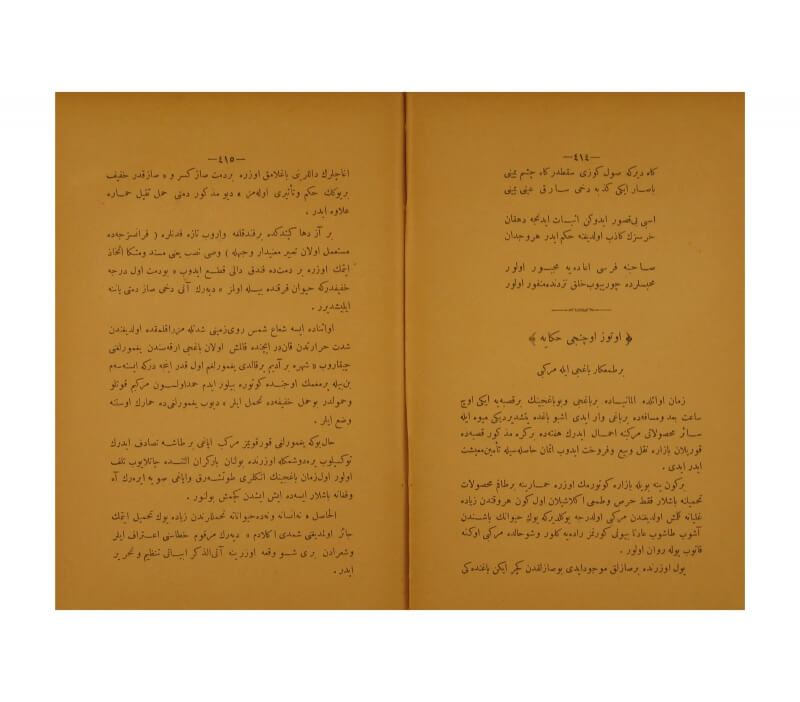 —٤١٤—
كاه ديركه صول كوزى سقطدر كاه چشم يمينى
باصار ايكى كذبه دخى سارق عينى يمينى
اسى بى قصور ايدوكن اثبات ايدنجه دهقان
خرسزك كاذب اولديغنه حكم ايدر هروجدان
صاحنه فرسى اعاده‌يه مجبور اولور
مجلسلرده چوريبوب خلق نزدنده منفور اولور
﴿ اوتوز اوچنجى حكايه ﴾
برطمعكار باغجى ايله مركبى
زمان اوائلده المانياده برباغجى وبوباغجينك برقصبه‌يه ايكى اوچ
ساعت بعد ومسافه‌ده برباغى وار ايدى اشبو باغده يتشديرديكى ميوه ايله
سائر محصولاتى مركبنه احمال ايدرك هفته‌ده بركره مذكور قصبه‌ده
قوريلان بازاره نقل وبيع وفروخت ايدوب اثمان حاصله‌سيله تأمين معيشت
ايدر ايدى .
بركون ينه بويله بازاره كوتورمك اوزره حمارينه برطاقم محصولات
تحميلنه باشلار فقط حرص وطمعى اكلاشيلان اول كون هروقتدن زياده
غليانه كلمش اولديغندن مركبى اولدرجه يوكلديركه يوك حيوانك باشندن
آشوب طاشوب عادتا بيوك كورنمز راده‌يه كلور وشوحالده مركبى اوكنه
قاتوب يوله روان اولور .
يول اوزرنده برصازلق موجود ايدى بوصازلقدن كچر ايكن باغنده‌كى
—٤١٥—
اغاچلرك داللرينى باغلامق اوزره بردمت صاز كسر و « صاز قدر خفيف
بريوكك حكم وتأثيرى اوله‌مز » ديو مذكور دمتى حمل ثقيل حماره
علاوه ايدر .
بر آز دها كيتدكده برفندقلغه واروب تازه فدنلره ( فرانسزجه‌ده
مستعمل اولان تعبير معنيدار وجهله ) وصى نصب يعنى مسند ومتكا اتخاذ
ايتمك اوزره بر دمت‌ده فندق دالى قطع ايدوب « بودمت اول درجه
خفيفدركه حيوان فرقنده بيله اولمز » ديه‌رك آنى دخى صاز دمتى ياننه
ايليشديرر .
اواثناده ايسه شعاع شمس روى زمينى شدتله حرارقلمقده اولديغندن
شدت حرارتدن قان‌در ايچنده قالمش اولان باغجى ارقه‌سندن يغمورلغنى
چيقاروب « شهره بر آديم يرقالدى يغمورلغم اول قدر اينجه دركه ايسته‌سه‌م
بن بيله برمغمك اوجنده كوتوره بيلور ايدم حمداولسون مركبم قوتلو
وحمولدر بوحمل خفيفه‌ده تحمل ايلر » ديوب يغمورلغى‌ده حمارك اوستنه
وضع ايلر .
حال‌بوكه يغمورلغى قورقونيز مركب اياغى برطاشه تصادف ايدرك
توكسيلوب يره دوشمكله اوزرنده بولنان باركران التنده چاتلايوب تلف
اولور اول زمان باغجينك اتكلرى طوتشه‌رق واياغى صويه ايره‌رك آه
وفغانه باشلار ايسه‌ده ايش ايشدن كچمش بولنور .
الحاصل « نه‌انسانه ونه‌ده حيوانانه تحمللرندن زياده يوك تحميل ايتمك
جائز اولديغنى شمدى اكلادم » ديه‌رك مرقوم خطاسنى اعتراف ايلر
وشعرادن برى شو وقعه اوزرينه آتى‌الذكر ابياتى تنظيم وتحرير
ايدر .